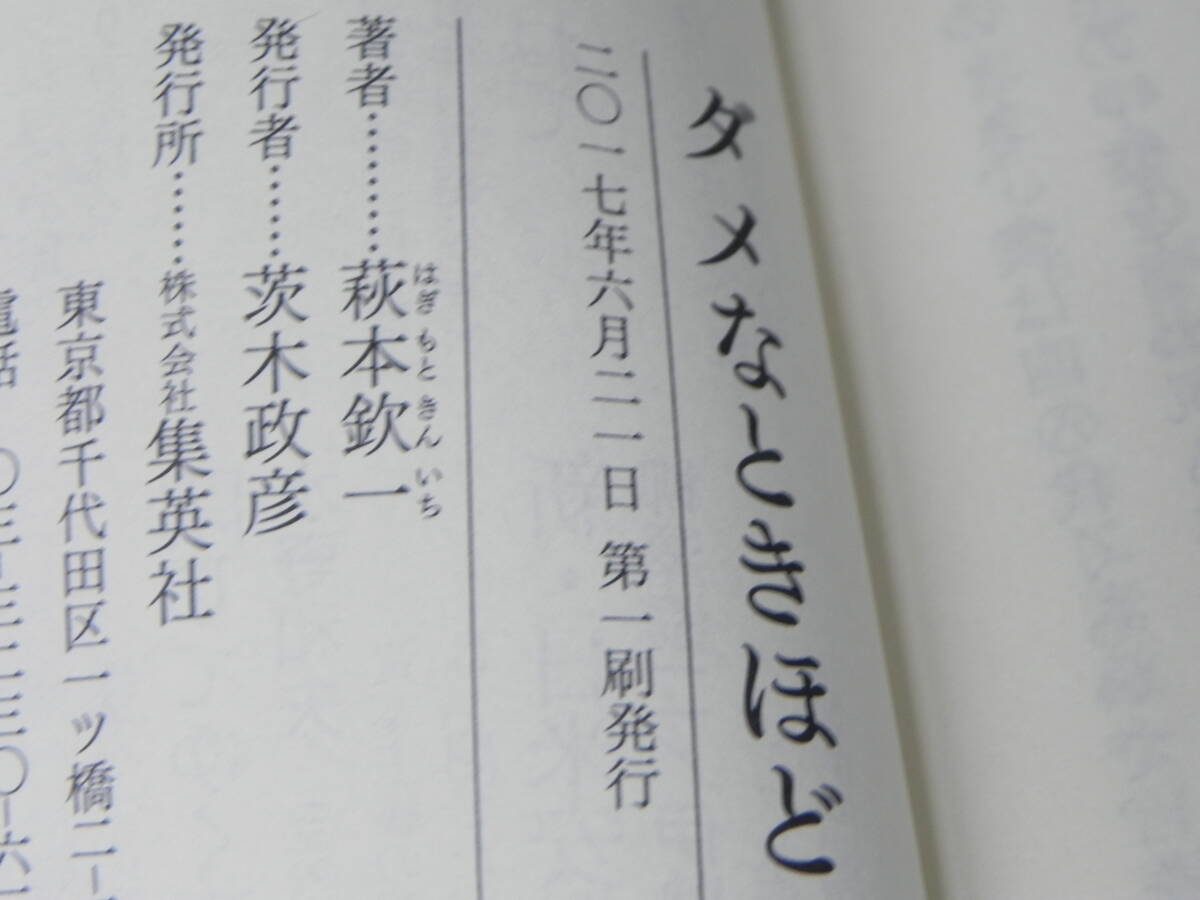 ダメなときほど
二〇一七年六月二一日 第一刷発行
はぎもときんいち
著者………萩本欽一
発行者……茨木政彦
発行所……株式会社集英社
東京都千代田区一ツ橋二-
電話 〇三-三二三〇-六